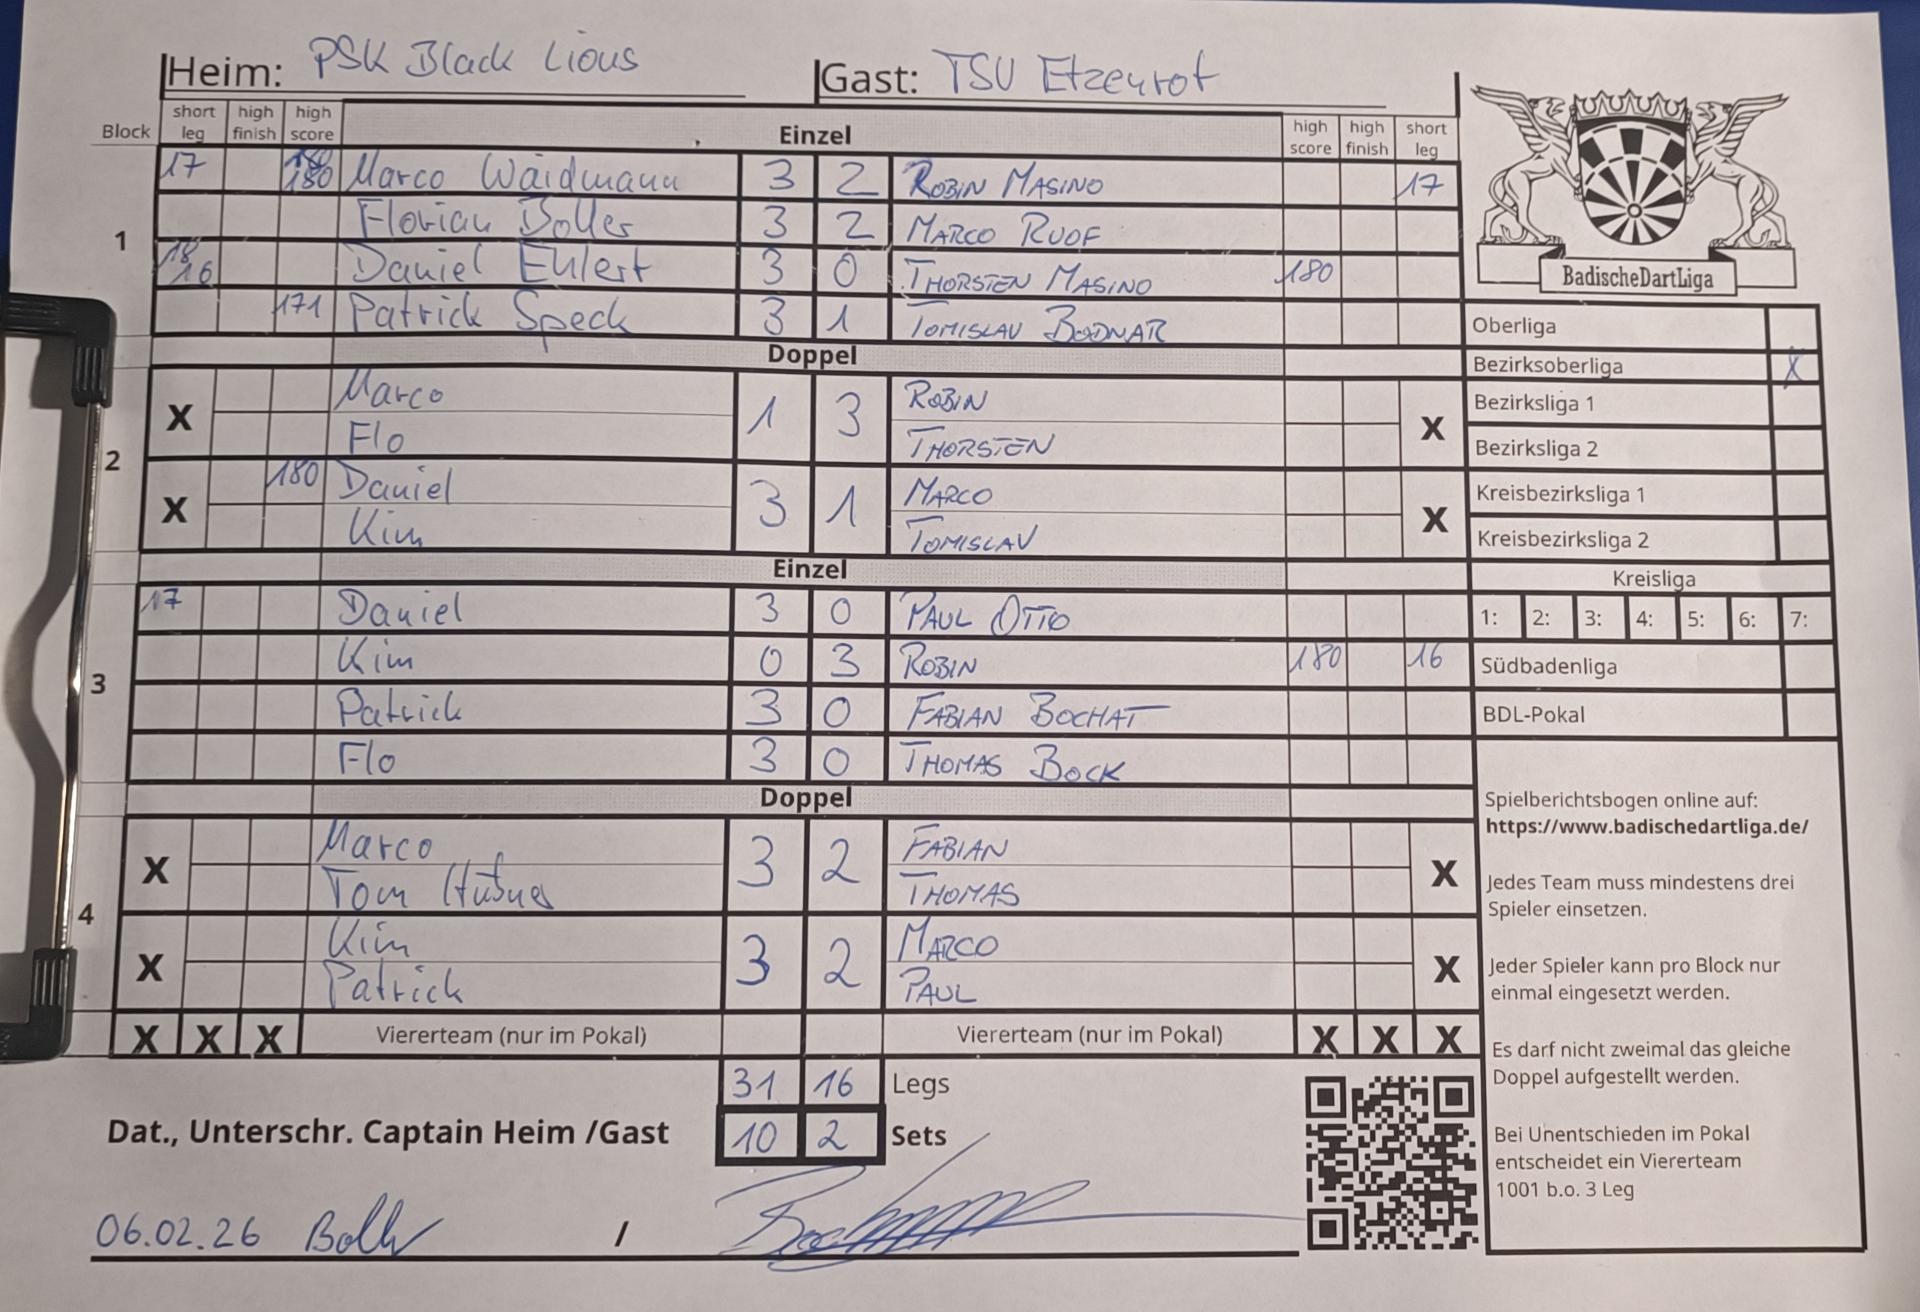 Heim: PSK Black Lions Gast: TSV Etzenrot
Block short leg high finish high score Einzel high score high finish short leg
1
17 180 180 Marco Waidmann 3 2 ROBIN MASINO 17
Florian Boller 3 2 MARCO RUOF
18 16 Daniel Ehlert 3 0 THORSTEN MASINO 180
171 Patrick Speck 3 1 TOMISLAV BODNAR
Doppel
2
X Marco 1 3 ROBIN X
Flo THORSTEN
X 180 Daniel 3 1 MARCO X
Kim TOMISLAV
Einzel
3
17 Daniel 3 0 PAUL OTTO
Kim 0 3 ROBIN 180 16
Patrick 3 0 FABIAN BOCHAT
Flo 3 0 THOMAS BOCK
Doppel
4
X Marco 3 2 FABIAN X
Tom THOMAS
X Kim 3 2 MARCO X
Patrick PAUL
X X X Viererteam (nur im Pokal) Viererteam (nur im Pokal) X X X
31 16 Legs
10 2 Sets
Dat., Unterschr. Captain Heim /Gast
06.02.26 /
BadischeDartLiga
Oberliga
Bezirksoberliga X
Bezirksliga 1
Bezirksliga 2
Kreisbezirksliga 1
Kreisbezirksliga 2
Kreisliga
1: 2: 3: 4: 5: 6: 7:
Südbadenliga
BDL-Pokal
Spielberichtsbogen online auf:
https://www.badischedartliga.de/
Jedes Team muss mindestens drei
Spieler einsetzen.
Jeder Spieler kann pro Block nur
einmal eingesetzt werden.
Es darf nicht zweimal das gleiche
Doppel aufgestellt werden.
Bei Unentschieden im Pokal
entscheidet ein Viererteam
1001 b.o. 3 Leg